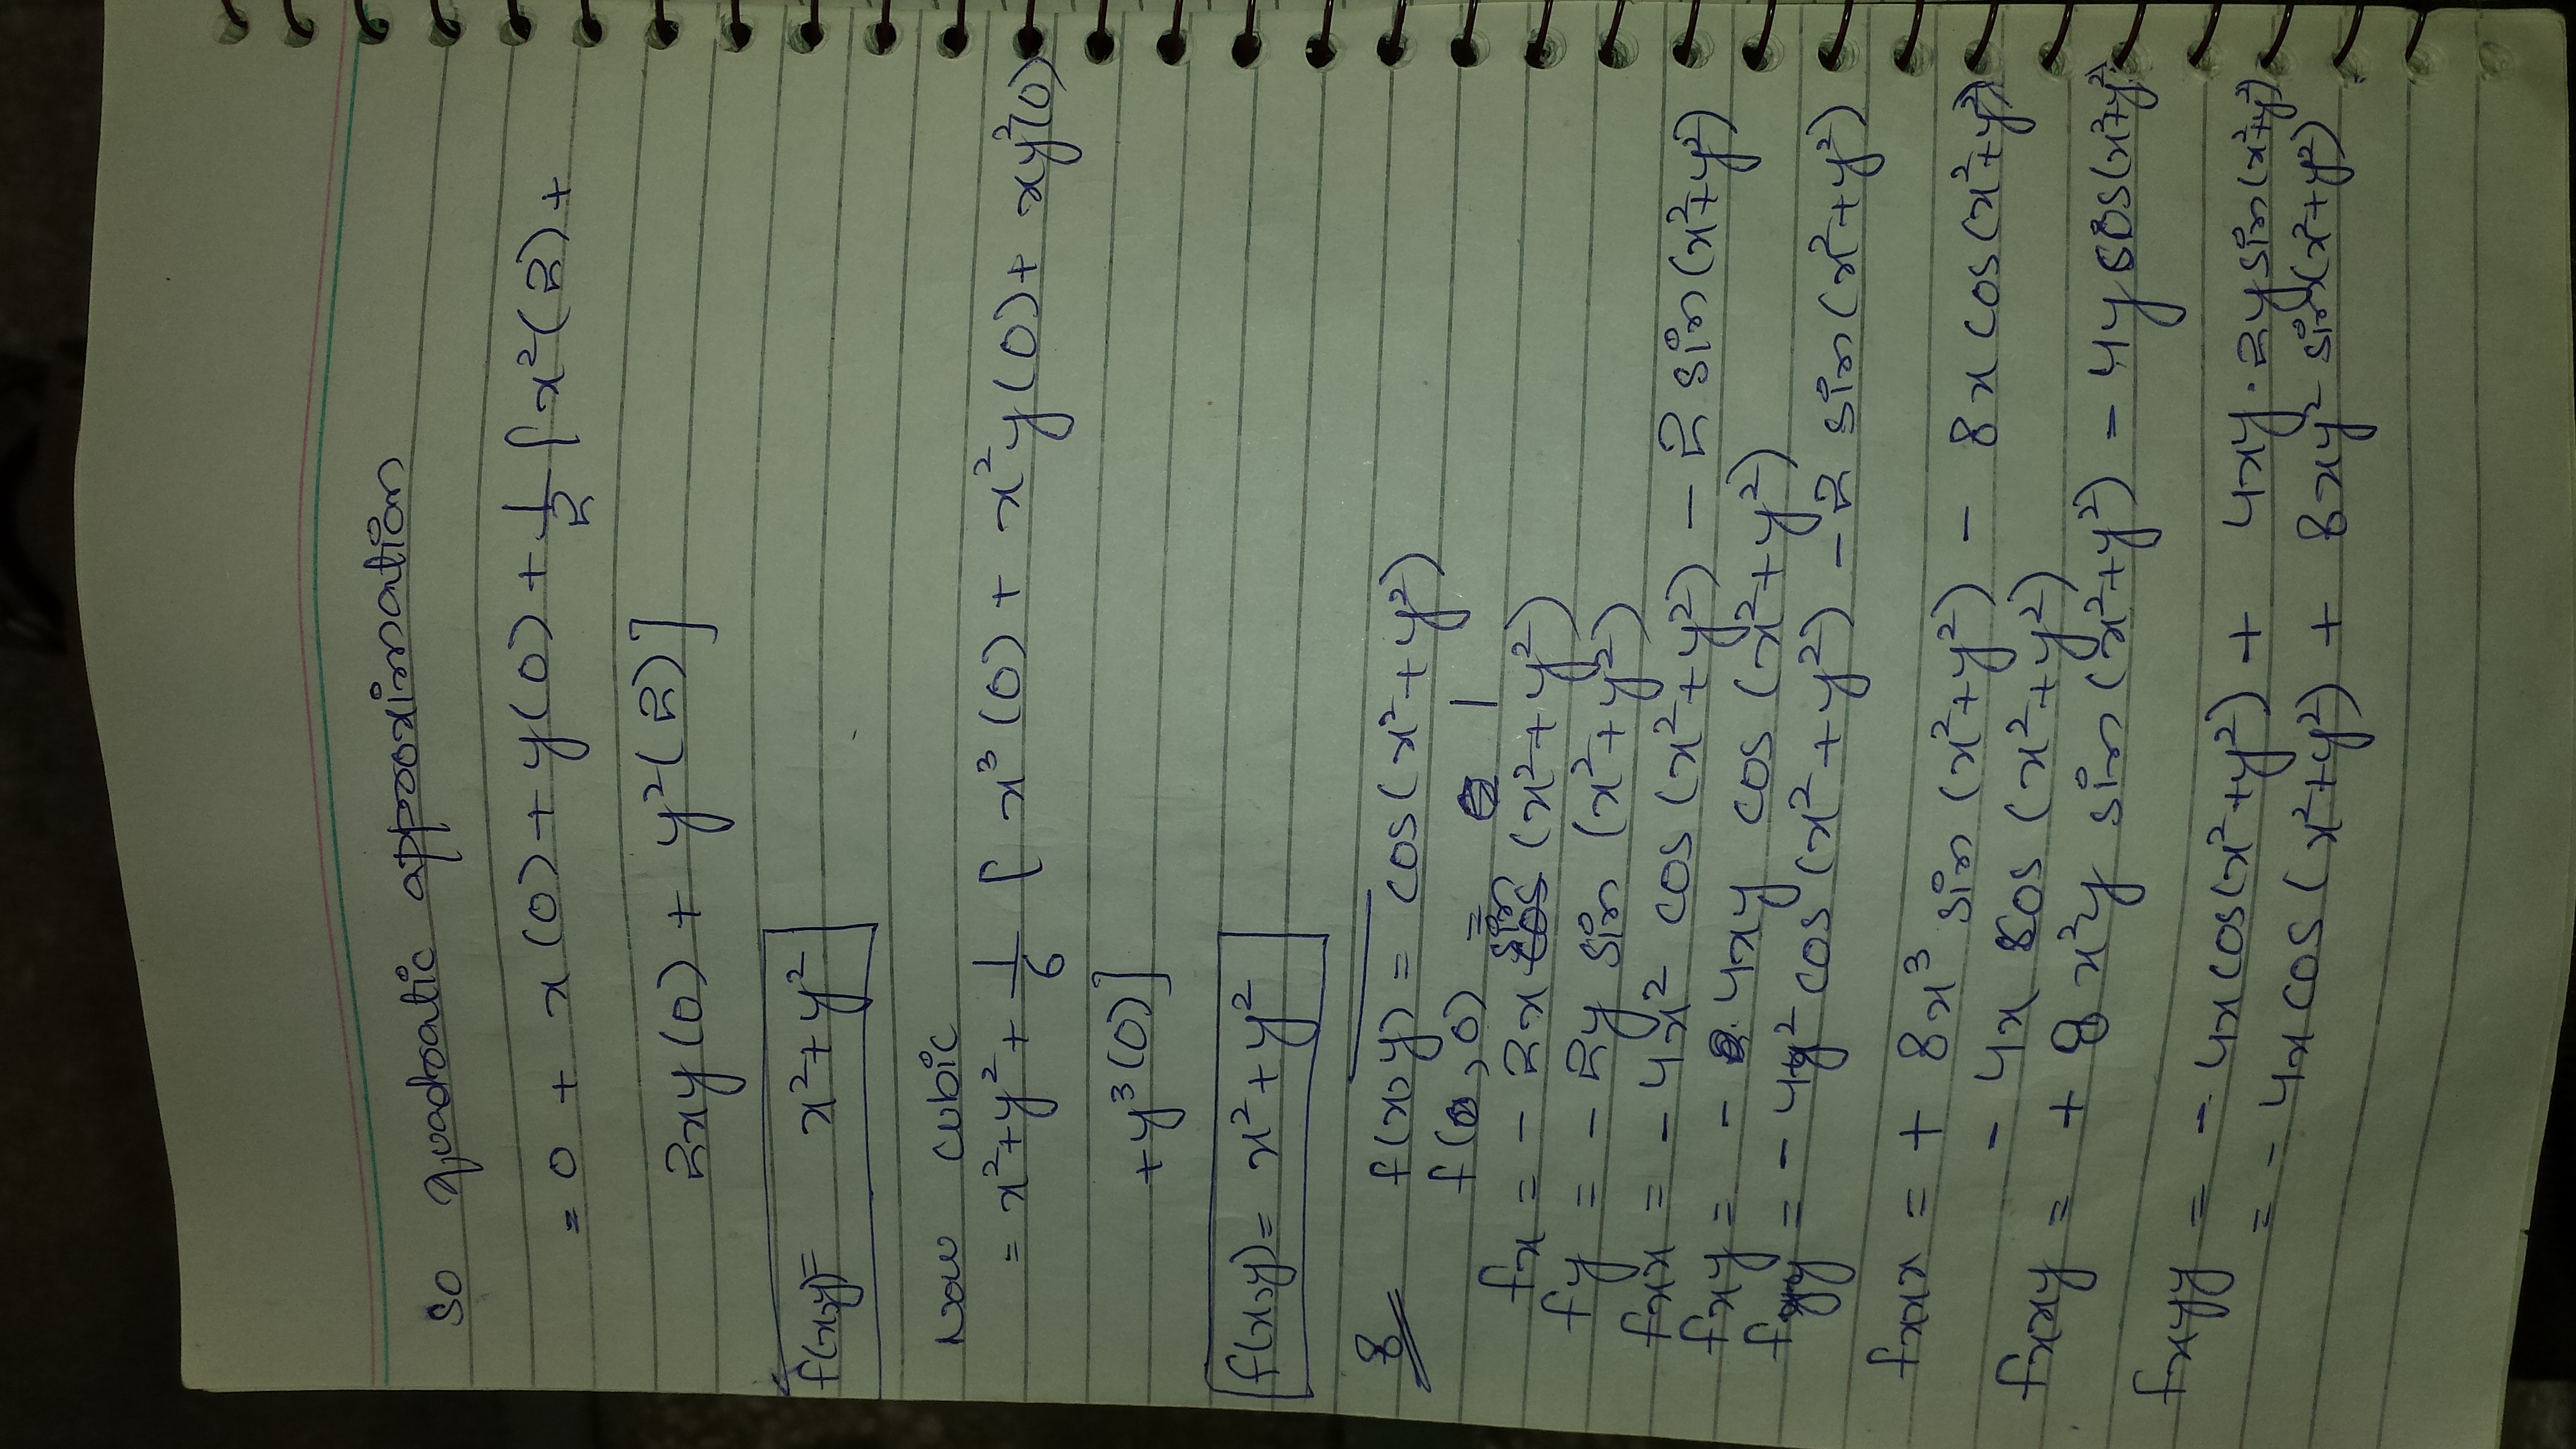 so quadratic approximation
= 0 + x(0) + y(0) + 1/2 [x²(2) +
2xy(0) + y²(2)]
f(x,y)= x²+y²
Now cubic
= x²+y² + 1/6 [x³(0) + x²y(0) + xy²(0)
+y³(0)]
f(x,y)= x²+y²
8 f(x,y) = cos(x²+y²)
f(0,0) = 1
fx = - 2x sin (x²+y²)
fy = - 2y sin (x²+y²)
fxx = - 4x² cos (x²+y²) - 2 sin(x²+y²)
fxy = - 4xy cos (x²+y²)
fyy = - 4y² cos (x²+y²) - 2 sin(x²+y²)
fxxx = + 8x³ sin (x²+y²) - 8x cos(x²+y²)
- 4x cos (x²+y²)
fxxy = + 8x²y sin (x²+y²) - 4y cos(x²+y²)
fxyy = - 4x cos(x²+y²) + 4xy·2y sin(x²+y²)
= - 4x cos (x²+y²) + 8xy² sin(x²+y²)